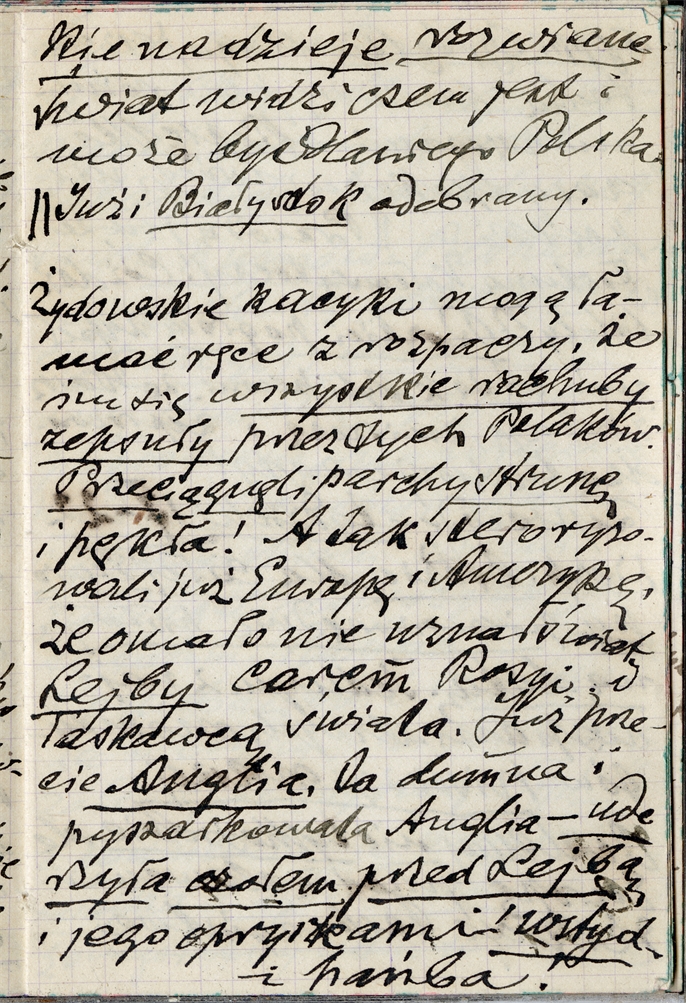 kie nadzieje rozwiane
świat widzi czem jest i
może być dla niego Polska.
Już i Białystok odebrany.
Żydowskie kacyki mogą ła-
mać ręce z rozpaczy, że
im się wszystkie rachuby
zepsuły przez tych Polaków.
Przeciągnęli parchy strunę
i pękła! A tak steroryzo-
wali już Europę i Amerykę,
że omało nie uznał świat
Lejby carem Rosyi i
łaskawcą świata. Już prze-
cie Anglia, ta dumna i
pyszałkowata Anglia – ude
rzyła czołem przed Lejbą
i jego opryszkami! wstyd
i hańba!